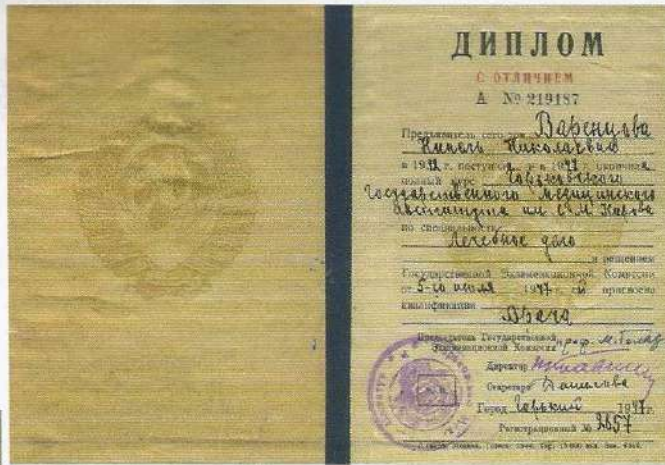 ДИПЛОМ
С ОТЛИЧИЕМ
А № 219187
Предъявитель сего тов. Варенцова
Нинель Николаевна
в 19 г. поступил и в 19 г. окончила
полный курс Горьковского
Государственного Медицинского
Института им С. М. Кирова
по специальности
Лечебное дело
и решением
Государственной Экзаменационной Комиссии
от 5-го июля 1947 г. ей присвоена
квалификация
Врача
Председатель Государственной
Экзаменационной Комиссии проф. М.
Директор
Секретарь
Город Горький 1947г.
Регистрационный № 2657